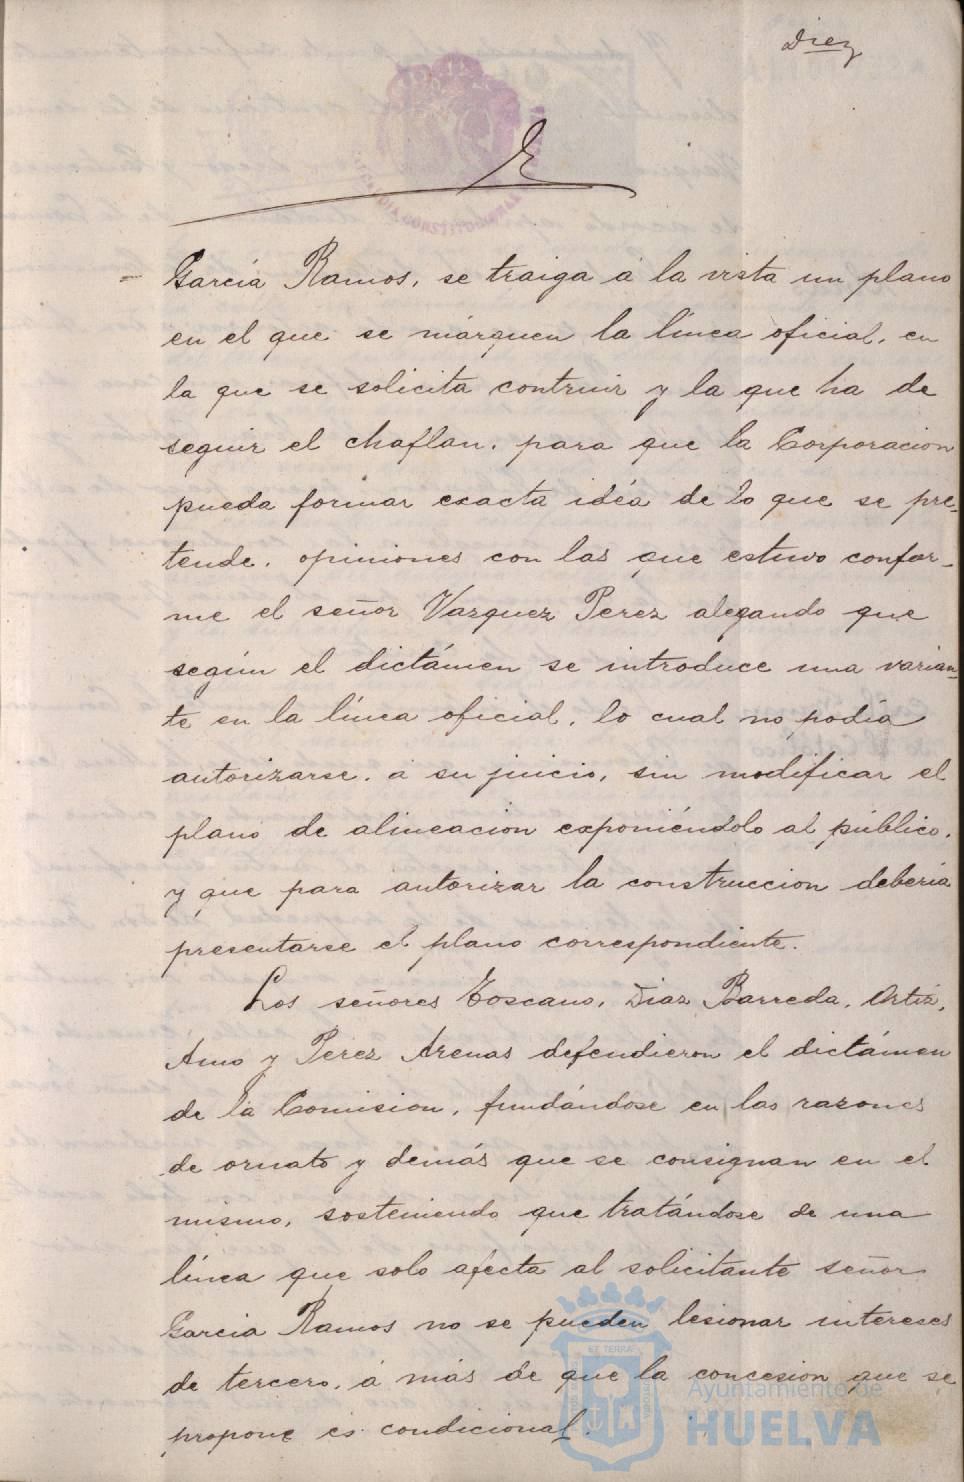 Diez
García Ramos, se traiga á la vista un plano
en el que se márquen la línea oficial, en
la que se solicita contruir y la que ha de
seguir el chaflan, para que la Corporacion
pueda formar exacta idéa de lo que se pre-
tende, opiniones con las que estuvo confor-
me el señor Vazquez Perez alegando que
según el dictámen se introduce una varian-
te en la línea oficial, lo cual no podía
autorizarse, á su juicio, sin modificar el
plano de alineacion exponiéndolo al público,
y que para autorizar la construccion debería
presentarse el plano correspondiente.
Los señores Toscano, Diaz Barreda, Ortiz,
Amo y Perez Arenas defendieron el dictámen
de la Comision, fundándose en las razones
de ornato y demás que se consignan en el
mismo, sosteniendo que tratándose de una
línea que solo afecta al solicitante señor
García Ramos no se pueden lesionar intereses
de tercero, á más de que la concesion que se
propone es condicional.
ET TERRÆ
Ayuntamiento de
HUELVA